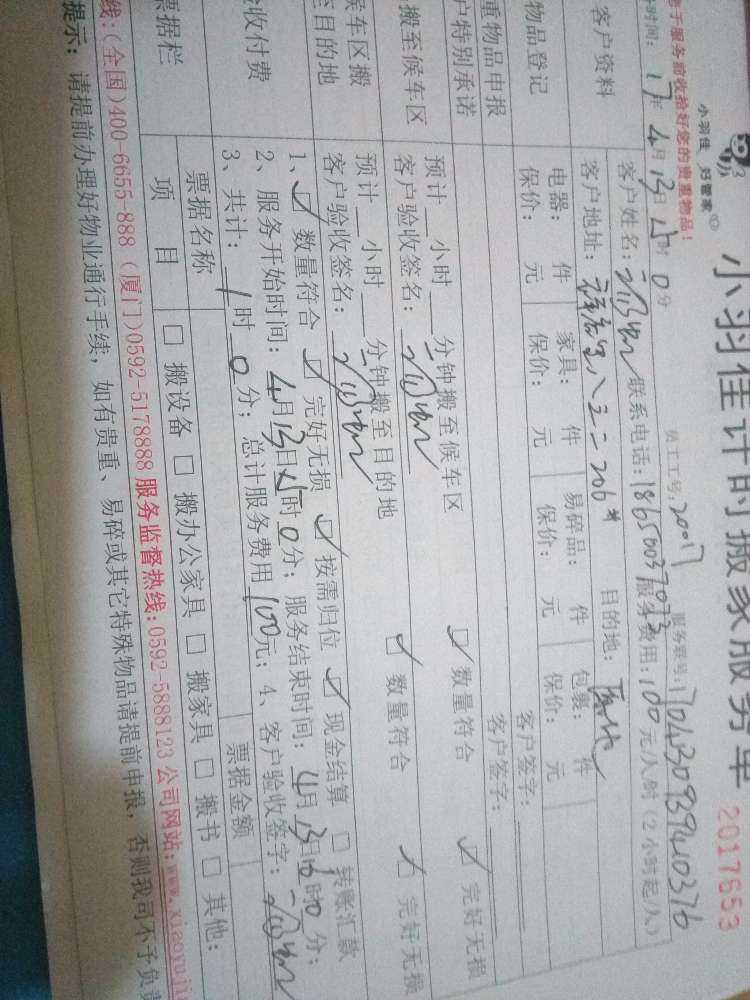 小羽佳 好管家
小羽佳计时搬家服务单 2017653
于服务前收拾好您的贵重物品!
员工工号: 20017 服务账号:
时间: 17年 4月 13日 15时 0分
客户资料
客户姓名: 联系电话: 18650037073 服务费用: 100 元/人时(2小时起/人)
客户地址: 目的地:
物品登记
电器: 件 家具: 件 易碎品: 件 包裹: 件
保价: 元 保价: 元 保价: 元 保价: 元
重物品申报 客户签字:
户特别承诺 客户签字:
搬至候车区
预计 小时 分钟搬至候车区 数量符合 完好无损
客户验收签名:
候车区搬
至目的地
预计 小时 分钟搬至目的地 数量符合 完好无损
客户验收签名:
验收付费
1、 数量符合 完好无损 按需归位 现金结算 转账汇款
2、服务开始时间: 4月13日15时0分; 服务结束时间: 4月13日16时0分;
3、共计: 1时0分; 总计服务费用 100元; 4、客户验收签字:
票据栏
票据名称 票据金额
项 目 搬设备 搬办公家具 搬家具 搬书 其他:
线:(全国)400-6655-888 (厦门)0592-5178888 服务监督热线:0592-5888123 公司网站:www.xiaoyuji
提示: 请提前办理好物业通行手续, 如有贵重、易碎或其它特殊物品请提前申报, 否则我司不予负责